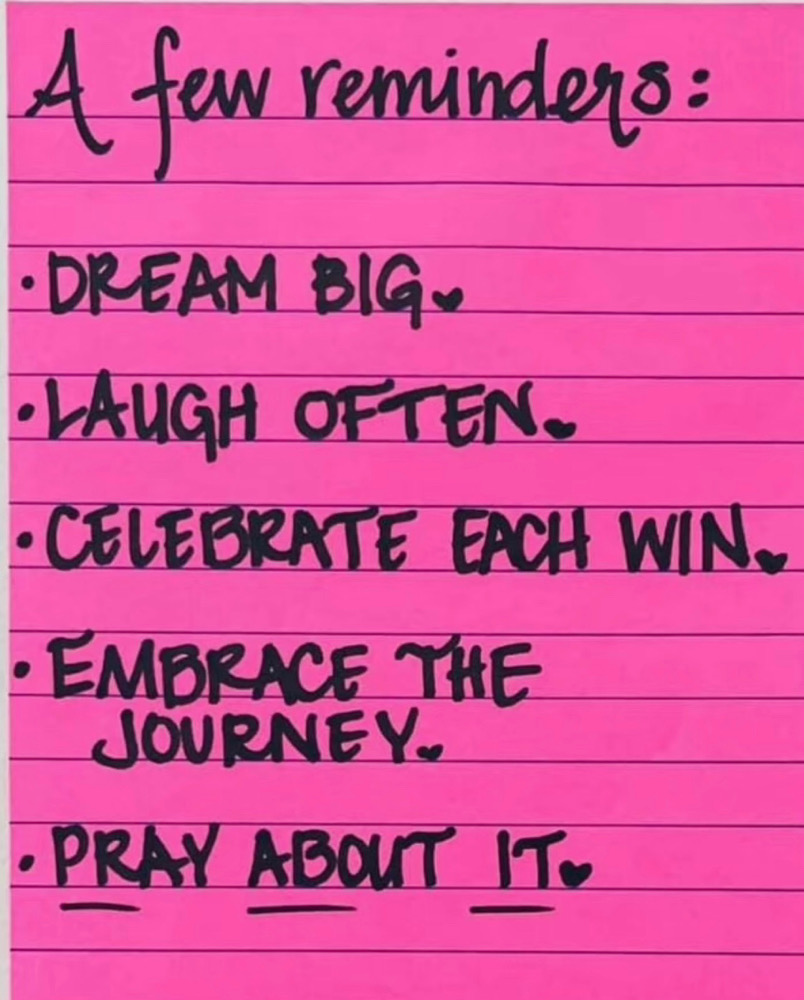 A few reminders:
• DREAM BIG.
• LAUGH OFTEN.
• CELEBRATE EACH WIN.
• EMBRACE THE
JOURNEY.
• PRAY ABOUT IT.